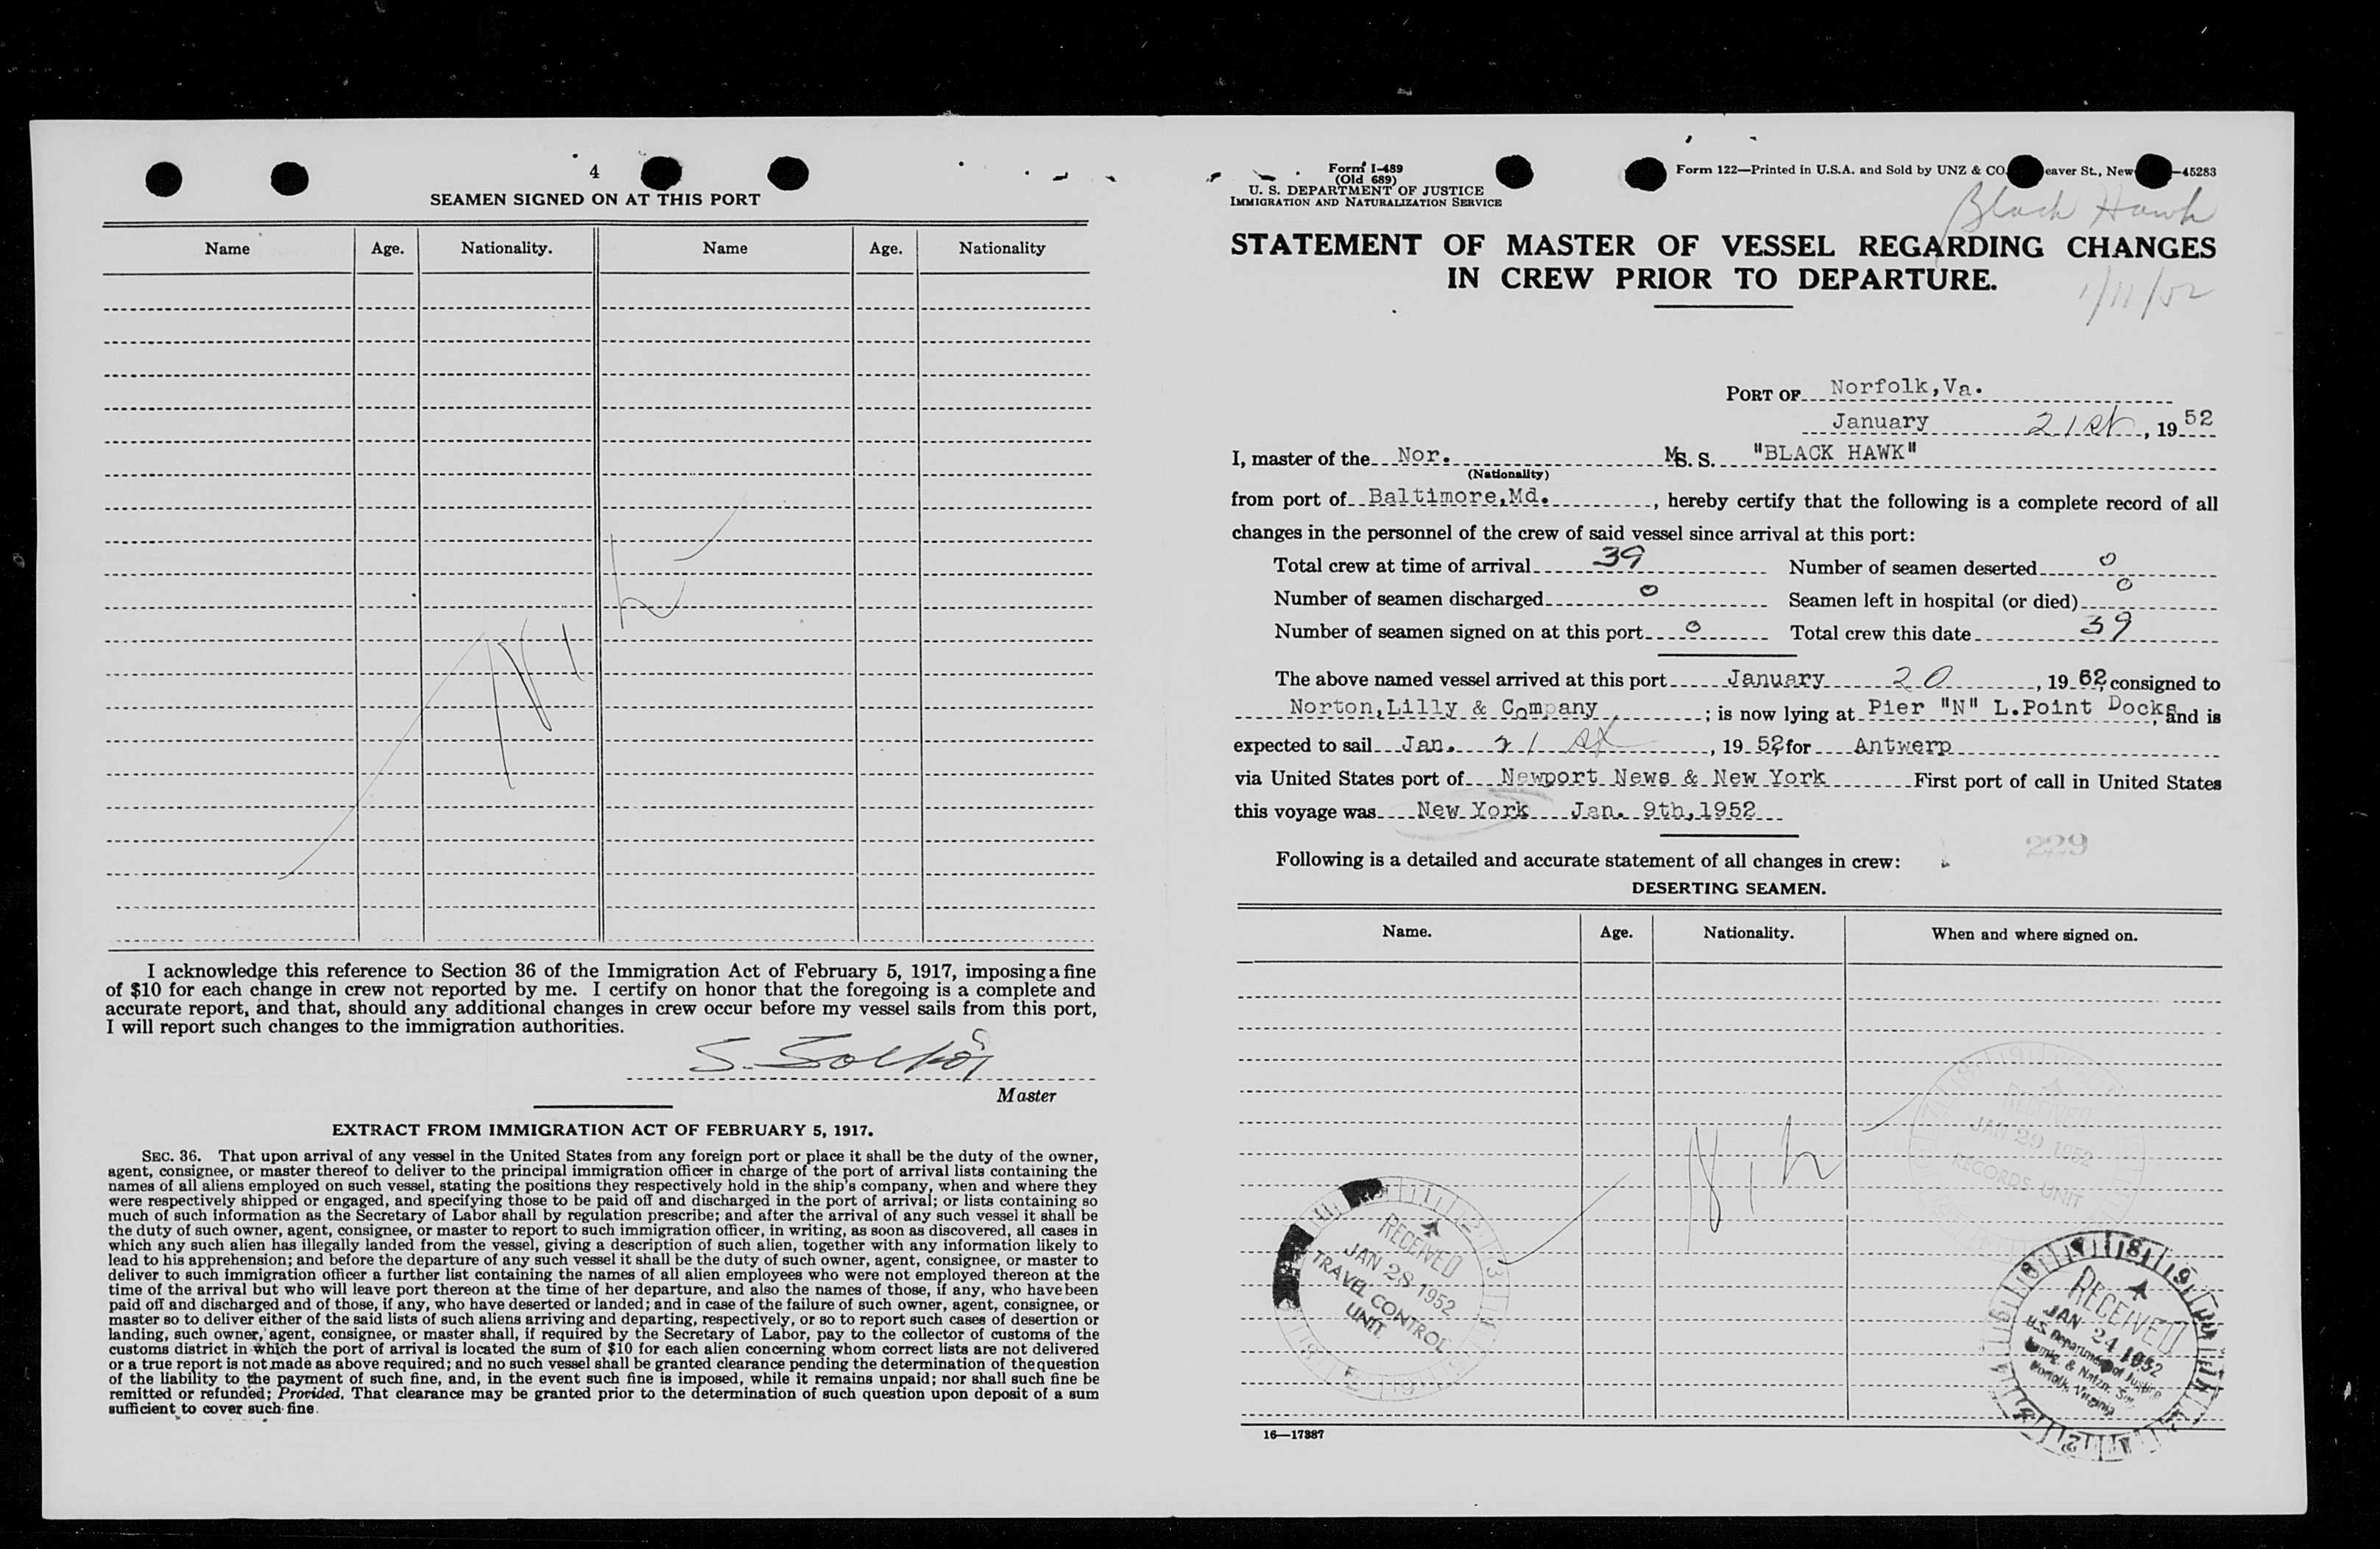 4
SEAMEN SIGNED ON AT THIS PORT
Name Age. Nationality. Name Age. Nationality
Nil
I acknowledge this reference to Section 36 of the Immigration Act of February 5, 1917, imposing a fine
of $10 for each change in crew not reported by me. I certify on honor that the foregoing is a complete and
accurate report, and that, should any additional changes in crew occur before my vessel sails from this port,
I will report such changes to the immigration authorities.
Master
EXTRACT FROM IMMIGRATION ACT OF FEBRUARY 5, 1917.
SEC. 36. That upon arrival of any vessel in the United States from any foreign port or place it shall be the duty of the owner,
agent, consignee, or master thereof to deliver to the principal immigration officer in charge of the port of arrival lists containing the
names of all aliens employed on such vessel, stating the positions they respectively hold in the ship's company, when and where they
were respectively shipped or engaged, and specifying those to be paid off and discharged in the port of arrival; or lists containing so
much of such information as the Secretary of Labor shall by regulation prescribe; and after the arrival of any such vessel it shall be
the duty of such owner, agent, consignee, or master to report to such immigration officer, in writing, as soon as discovered, all cases in
which any such alien has illegally landed from the vessel, giving a description of such alien, together with any information likely to
lead to his apprehension; and before the departure of any such vessel it shall be the duty of such owner, agent, consignee, or master to
deliver to such immigration officer a further list containing the names of all alien employees who were not employed thereon at the
time of the arrival but who will leave port thereon at the time of her departure, and also the names of those, if any, who have been
paid off and discharged and of those, if any, who have deserted or landed; and in case of the failure of such owner, agent, consignee, or
master so to deliver either of the said lists of such aliens arriving and departing, respectively, or so to report such cases of desertion or
landing, such owner, agent, consignee, or master shall, if required by the Secretary of Labor, pay to the collector of customs of the
customs district in which the port of arrival is located the sum of $10 for each alien concerning whom correct lists are not delivered
or a true report is not made as above required; and no such vessel shall be granted clearance pending the determination of the question
of the liability to the payment of such fine, and, in the event such fine is imposed, while it remains unpaid; nor shall such fine be
remitted or refunded; Provided, That clearance may be granted prior to the determination of such question upon deposit of a sum
sufficient to cover such fine.
Form I-489
(Old 689)
U. S. DEPARTMENT OF JUSTICE
IMMIGRATION AND NATURALIZATION SERVICE
Form 122—Printed in U.S.A. and Sold by UNZ & CO. eaver St., New —45283
Black Hawk
STATEMENT OF MASTER OF VESSEL REGARDING CHANGES
IN CREW PRIOR TO DEPARTURE.
1/11/52
PORT OF Norfolk,Va.
January 21st, 1952
I, master of the Nor. MS. S. "BLACK HAWK"
(Nationality)
from port of Baltimore,Md., hereby certify that the following is a complete record of all
changes in the personnel of the crew of said vessel since arrival at this port:
Total crew at time of arrival 39 Number of seamen deserted 0
Number of seamen discharged 0 Seamen left in hospital (or died) 0
Number of seamen signed on at this port 0 Total crew this date 39
The above named vessel arrived at this port January 20, 1952, consigned to
Norton,Lilly & Company; is now lying at Pier "N" L.Point Docks, and is
expected to sail Jan. 21 st, 1952 for Antwerp
via United States port of Newport News & New York First port of call in United States
this voyage was New York Jan. 9th,1952
229
Following is a detailed and accurate statement of all changes in crew:
DESERTING SEAMEN.
Name. Age. Nationality. When and where signed on.
Nil
RECEIVED
JAN 29 1952
RECORDS UNIT
RECEIVED
JAN 28 1952
TRAVEL CONTROL
UNIT
RECEIVED
JAN 24 1952
U.S. Department of Justice
Immig. & Natzn. Ser.
Norfolk, Virginia
16—17387